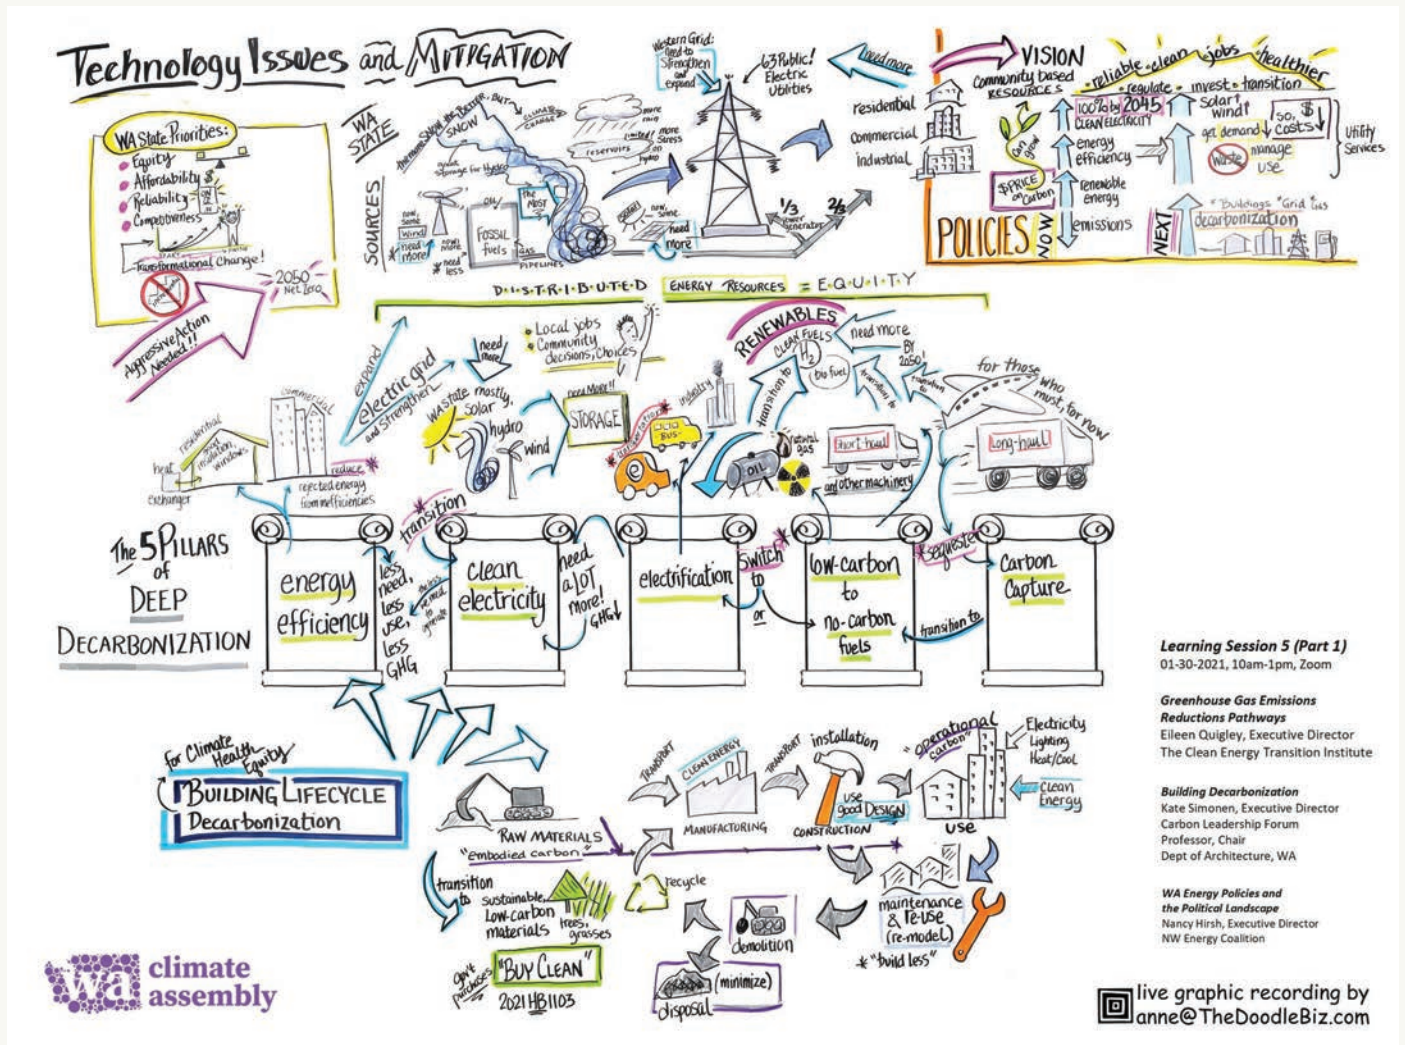 Technology Issues and MITIGATION
WA State Priorities:
Equity
Affordability $
Reliability
Competitiveness
Transformational Change!
2050
Net Zero
Aggressive Action
Needed!!
WA
STATE
SOURCES
SNOW
CLIMATE
CHANGE
more
rain
reservoirs
more
stress
on
hydro
Storage for Hydro
now,
some
Wind
need
more!
now,
more
need
less
oil
FOSSIL
fuels
GAS
PIPELINES
the
MOST
SOLAR
now,
some
need
more
Western Grid:
need to
Strengthen
and
expand
63 Public!
Electric
Utilities
1/3
power
generator
2/3
need more
residential
commercial
industrial
VISION
Community based
RESOURCES
reliable • clean • jobs • healthier
• regulate • invest • transition
can
grow
$PRICE
on Carbon
100% by 2045
CLEAN ELECTRICITY
energy
efficiency
renewable
energy
emissions
Solar↑
wind↑
get demand↓
Waste
manage
use
so, $
costs↓
Utility
Services
POLICIES
NOW
NEXT
*Buildings *Grid *Gas
decarbonization
D•I•S•T•R•I•B•U•T•E•D ENERGY RESOURCES = E•Q•U•I•T•Y
Local jobs
Community
decisions, choices
expand
and strengthen
electric grid
need
more!
WA State mostly,
Solar
hydro
wind
need More!!
STORAGE
transportation
BUS
e
industry
RENEWABLES
CLEAN FUELS
H2
bio fuel
need more
BY
2050!
transition to
transition to
transition
to
for those who
must, for now
OIL
natural
gas
Short-haul
and other machinery
Long-haul
residential
insulation,
windows
heat
exchanger
commercial
reduce
rejected energy
from inefficiencies
The 5 PILLARS
of
DEEP
DECARBONIZATION
energy
efficiency
less
need,
less
use,
less
GHG
transition
the less
we need
to
generate
clean
electricity
need
a LOT
more!
GHG↓
electrification
Switch
to
or
low-carbon
to
no-carbon
fuels
sequester
transition to
Carbon
Capture
for Climate
Health
Equity
BUILDING LIFECYCLE
Decarbonization
RAW MATERIALS
"embodied carbon"
TRANSPORT
CLEAN ENERGY
MANUFACTURING
TRANSPORT
installation
use
good DESIGN
CONSTRUCTION
"operational
carbon"
Electricity
Lighting
Heat/Cool
Clean
Energy
use
maintenance
& re-use
(re-model)
* "build less"
demolition
(minimize)
disposal
recycle
transition
to
sustainable,
Low-carbon
materials
trees,
grasses
gov't
purchases
"BUY CLEAN"
2021 HB1103
Learning Session 5 (Part 1)
01-30-2021, 10am-1pm, Zoom
Greenhouse Gas Emissions
Reductions Pathways
Eileen Quigley, Executive Director
The Clean Energy Transition Institute
Building Decarbonization
Kate Simonen, Executive Director
Carbon Leadership Forum
Professor, Chair
Dept of Architecture, WA
WA Energy Policies and
the Political Landscape
Nancy Hirsh, Executive Director
NW Energy Coalition
wa climate
assembly
live graphic recording by
anne@TheDoodleBiz.com